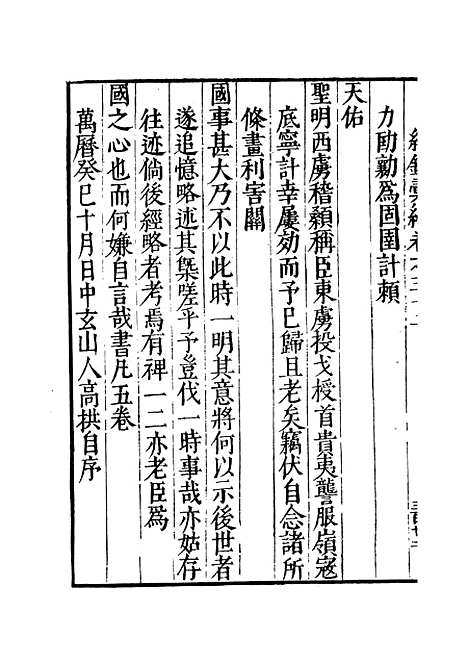 力劻勷為固圉計頼
天佑
聖明西虜稽顙稱臣東虜投戈授首貴夷讋服嶺寇
底寧計幸屢効而予已歸且老矣竊伏自念諸所
條畫利害關
國事甚大乃不以此時一明其意將何以示後世者
遂追憶略述其槩嗟乎予豈伐一時事哉亦姑存
往迹倘後經略者考焉有裨一二亦老臣為
國之心也而何嫌自言哉書凡五卷
萬曆癸巳十月日中玄山人高拱自序